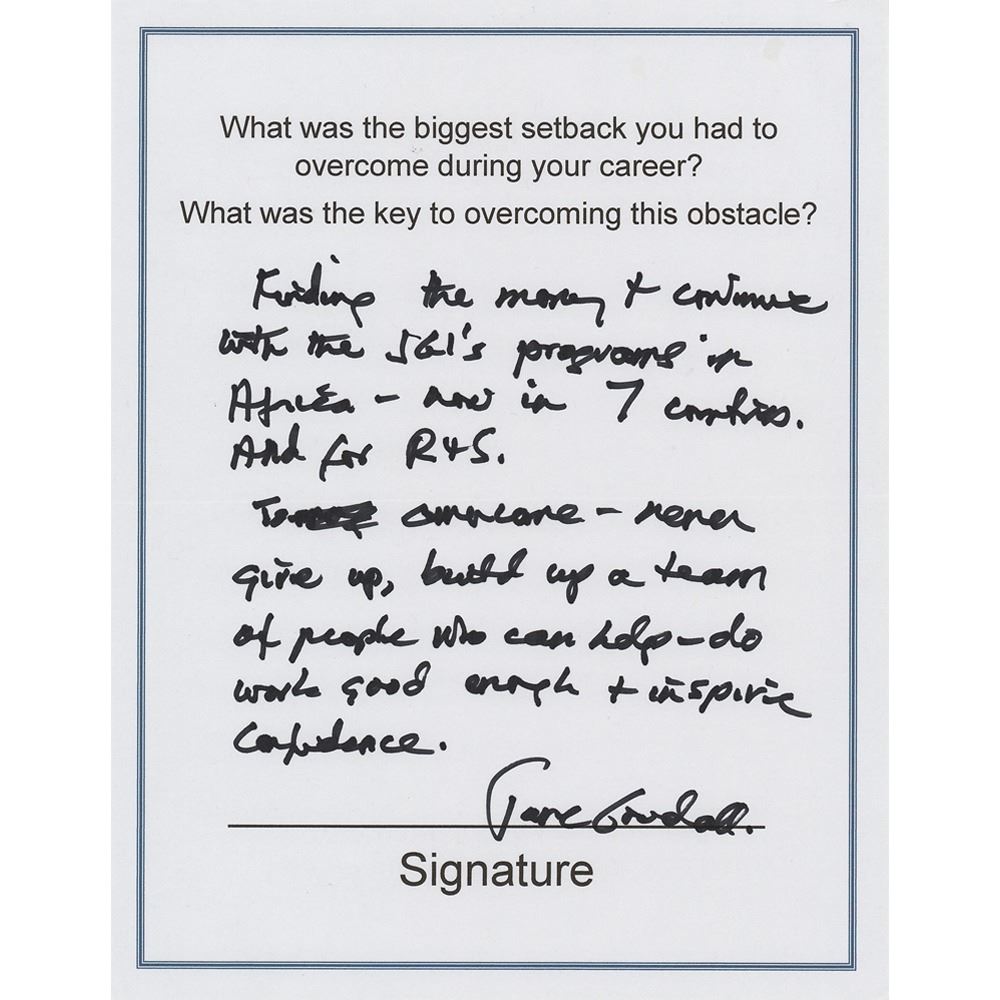 What was the biggest setback you had to
overcome during your career?
What was the key to overcoming this obstacle?
Finding the money to continue
with the JGI's programs in
Africa - now in 7 countries.
And for R+S.
To overcome - never
give up, build up a team
of people who can help - do
work good enough to inspire
confidence.
Jane Goodall.
Signature